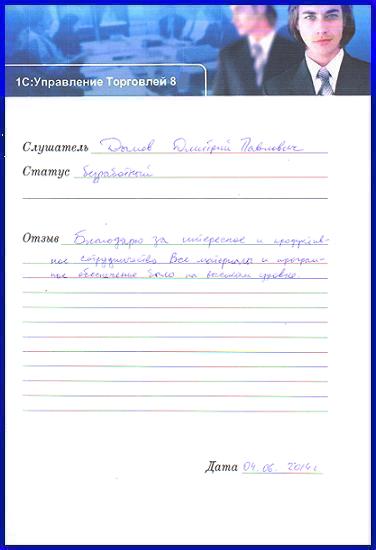 1С:Управление Торговлей 8
Слушатель Дымов Дмитрий Павлович
Статус безработный
Отзыв Благодарю за интересное и продуктив-
ное сотрудничество Все материалы и програм-
ное обеспечение было на высоком уровне.
Дата 04.06.2014г